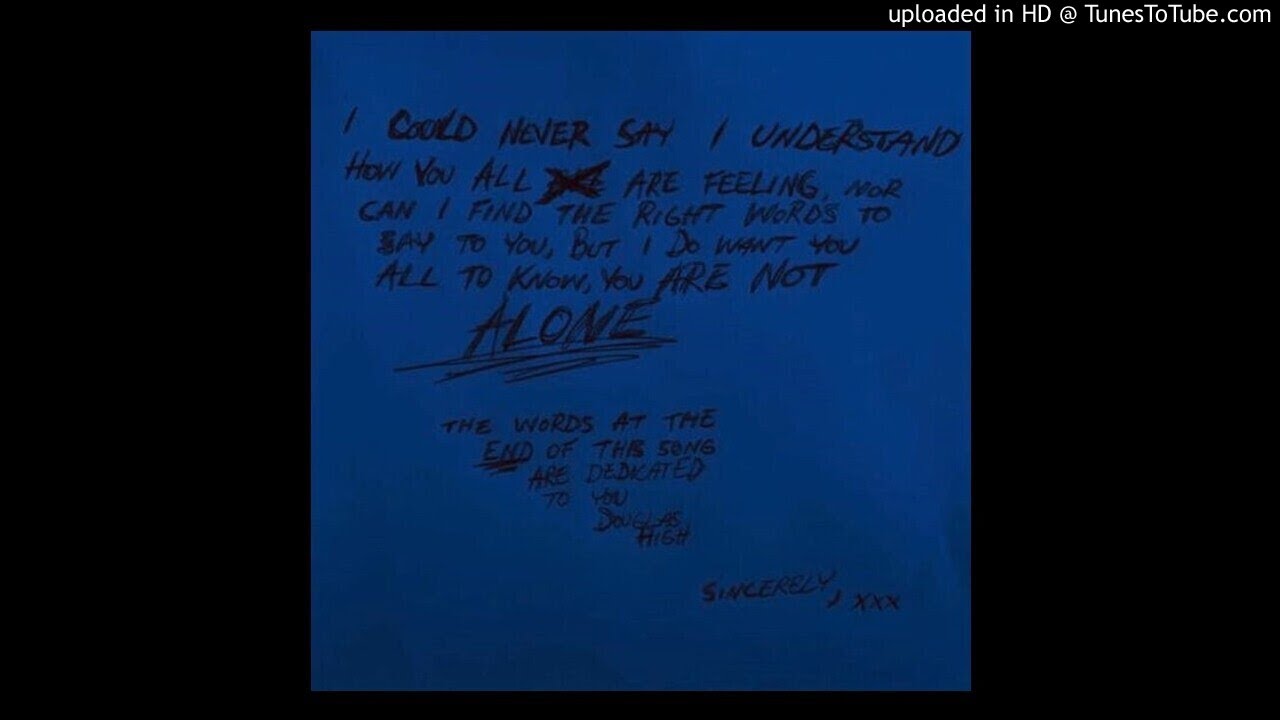 uploaded in HD @ TunesToTube.com
I COULD NEVER SAY I UNDERSTAND
HOW YOU ALL ARE FEELING, NOR
CAN I FIND THE RIGHT WORDS TO
SAY TO YOU, BUT I DO WANT YOU
ALL TO KNOW, YOU ARE NOT
ALONE
THE WORDS AT THE
END OF THIS SONG
ARE DEDICATED
TO YOU
DOUGLAS
HIGH
SINCERELY, XXX